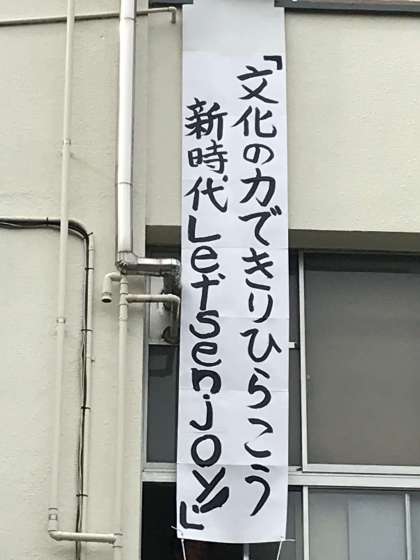 「文化の力できりひらこう
新時代Let'senjoy!」